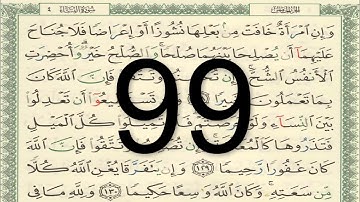 سُورَةُ النِّسَاء ٤
وَإِنِ امْرَأَةٌ خَافَتْ مِنْ بَعْلِهَا نُشُوزًا أَوْ إِعْرَاضًا فَلَا جُنَاحَ
عَلَيْهِمَا أَنْ يُصْلِحَا بَيْنَهُمَا صُلْحًا وَالصُّلْحُ خَيْرٌ وَأُحْضِرَتِ
الْأَنْفُسُ الشُّحَّ فَإِنَّ اللَّهَ كَانَ
بِمَا تَعْمَلُونَ أَنْ تَعْدِلُوا
بَيْنَ النِّسَاءِ كُلَّ الْمَيْلِ
فَتَذَرُوهَا وَتَتَّقُوا فَإِنَّ اللَّهَ
كَانَ غَفُورًا رَحِيمًا ١٢٩ وَإِنْ يَتَفَرَّقَا يُغْنِ اللَّهُ كُلًّا
مِنْ سَعَتِهِ وَكَانَ اللَّهُ وَاسِعًا حَكِيمًا ١٣٠ وَلِلَّهِ مَا فِي
99